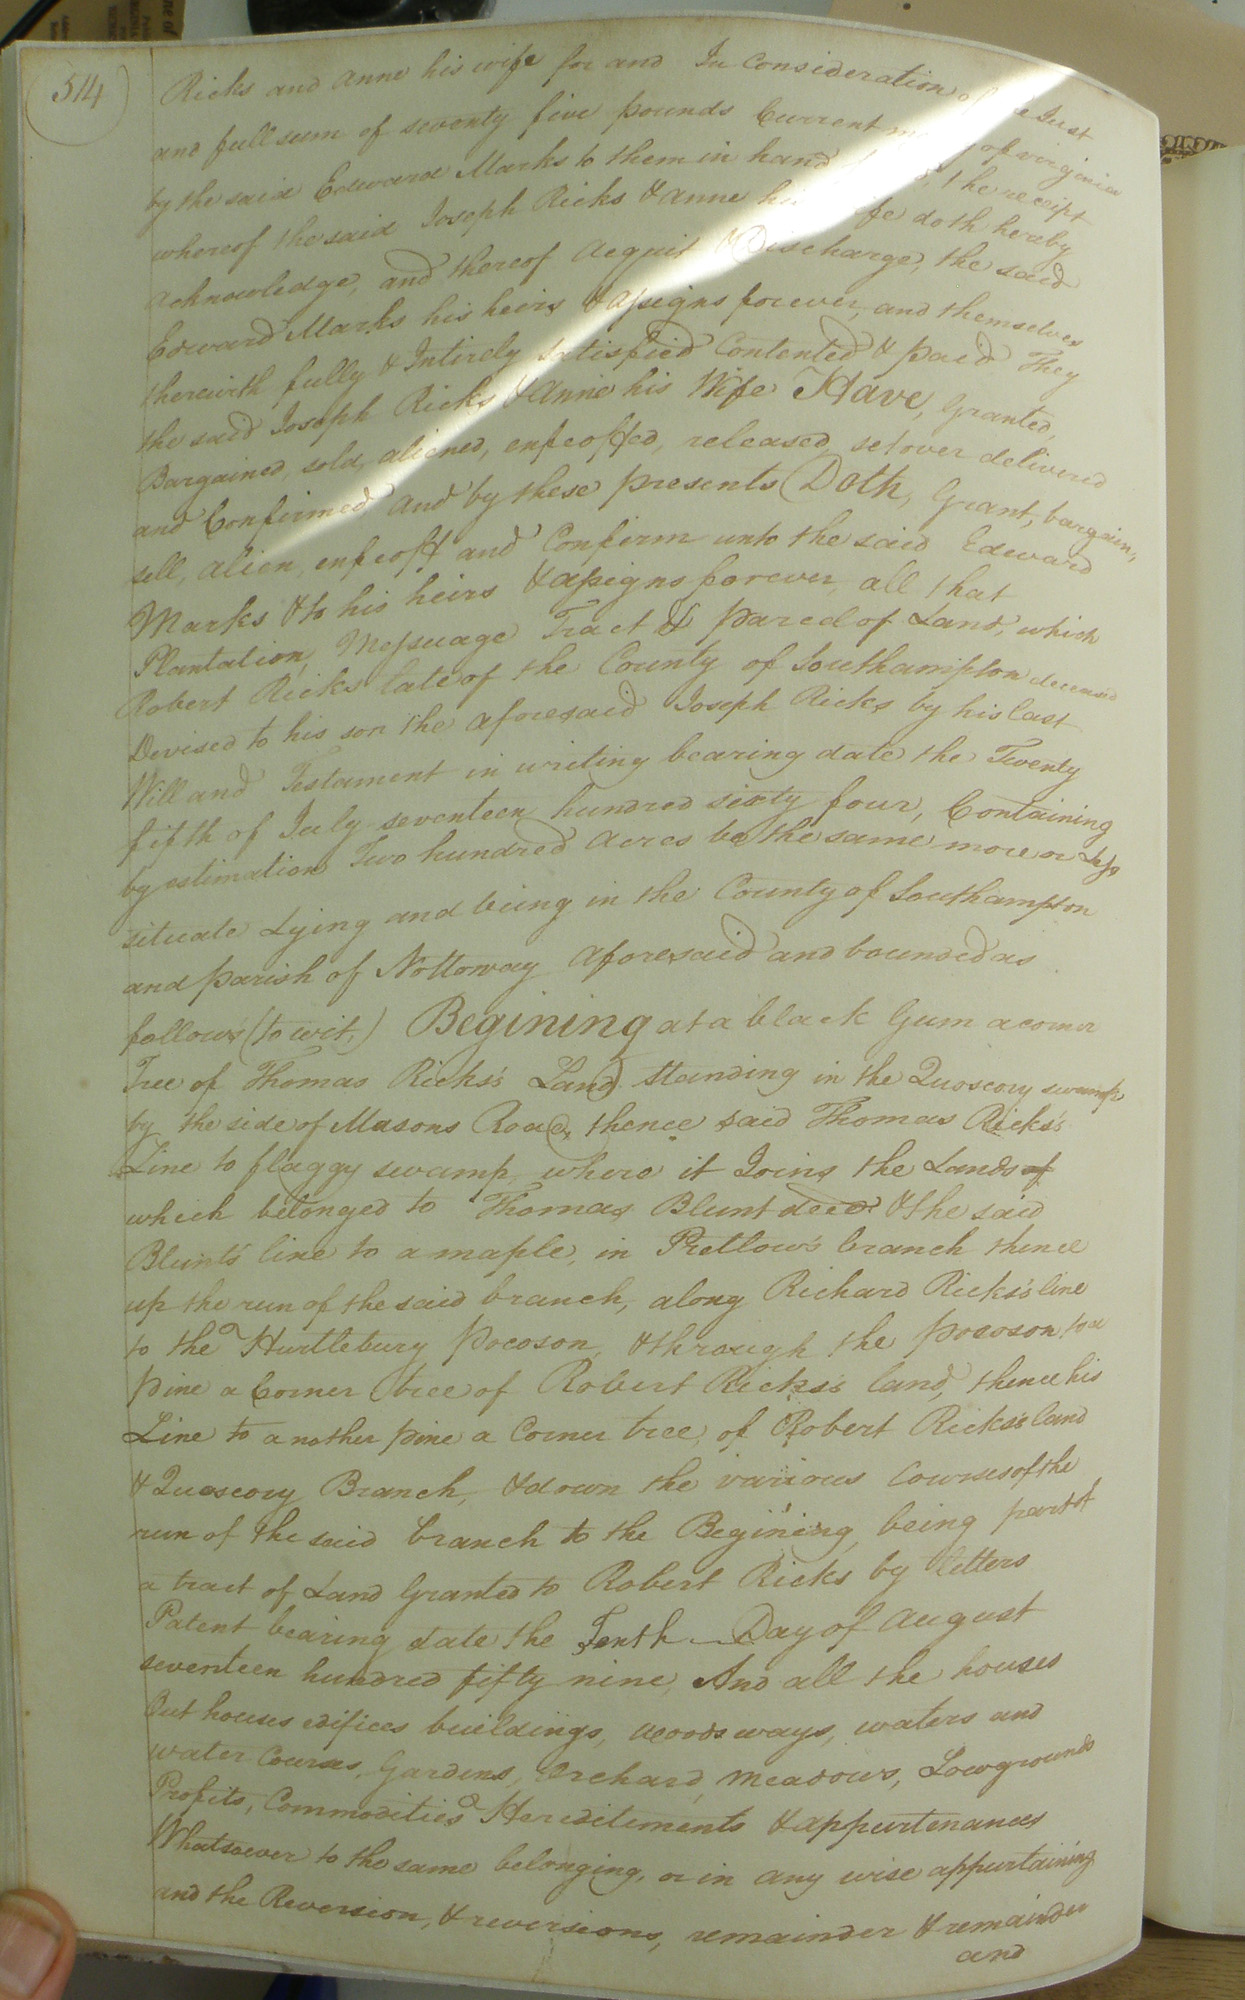 514
Ricks and Anne his wife for and In Consideration of Just
and full sum of seventy five pounds Current of virginia
by the said Edward Marks to them in hand the receipt
whereof the said Joseph Ricks & Anne his wife doth hereby
acknowledge, and thereof Acquit & Discharge, the said
Edward Marks his heirs & assigns forever, and themselves
therewith fully & Intirely satisfied Contented & paid They
the said Joseph Ricks & Anne his Wife Have, Granted,
Bargained, sold, aliened, enfeoffed, released, setover delivered
and Confirmed and by these presents Doth, Grant, bargain,
sell, alien, enfeoff and Confirm unto the said Edward
Marks & to his heirs & assigns forever, all that
Plantation, Messuage Tract & parcel of Land, which
Robert Ricks late of the County of Southampton deceased
Devised to his son the aforesaid Joseph Ricks by his last
Will and Testament in writing bearing date the Twenty
fifth of July seventeen hundred sixty four, Containing
by estimation Two hundred Acres be the same more or Less
situate Lying and being in the County of Southampton
and parish of Nottoway aforesaid and bounded as
follows (to wit,) Begining at a black Gum a corner
Tree of Thomas Ricks's Land standing in the Quoscoy swamp,
by the side of Masons Road, thence said Thomas Ricks's
Line to flaggy swamp, where it Joins the Lands of
which belonged to Thomas Blunt decd. & the said
Blunts line to a maple, in Pretlow's branch thence
up the run of the said branch, along Richard Ricks's line
to the Hurtlebury Pocoson, & through the pocoson to a
pine a Corner tree of Robert Ricks's land, thence his
Line to another pine a Corner tree, of Robert Ricks's land
& Quoscoy Branch, & down the various Courses of the
run of the said branch to the Begining, being part of
a tract of Land Granted to Robert Ricks by Letters
Patent bearing date the Tenth Day of August
seventeen hundred fifty nine, And all the houses
Out houses edifices buildings, woods ways, waters and
water Courses, Gardens, Orchard, meadows, Lowgrounds
Profits, Commodities Hereditements & appurtenances
Whatsoever to the same belonging, or in any wise appurtaining
and the Reversion, & reversions, remainder & remainder
and